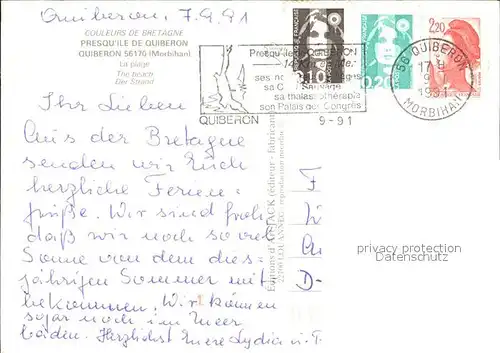 Quiberon, 7.9.91
COULEURS DE BRETAGNE
PRESQU'ILE DE QUIBERON
QUIBERON 56170 (Morbihan)
La plage
The beach
Der Strand
Ihr Lieben
Aus der Bretagne
senden wir Euch
herzliche Ferien-
grüße. Wir sind froh
daß wir noch so viel
Sonne von dem dies-
jährigen Sommer mit-
bekommen. Wir können
sogar noch im Meer
baden. Herzlichst Eure Lydia u.
Presqu'ile de QUIBERON
14 Km en mer
ses
sa Côte Sauvage
sa thalassothérapie
son Palais des Congrès
QUIBERON
9-91
0,10
0,20
2,20
56 QUIBERON
17 H
9 - 9
1991
MORBIHAN
Editions d'Art JACK (éditeur - fabricant)
22700 LOUANNEC - reproduction interdite
F
L
D-
privacy protection
Datenschutz